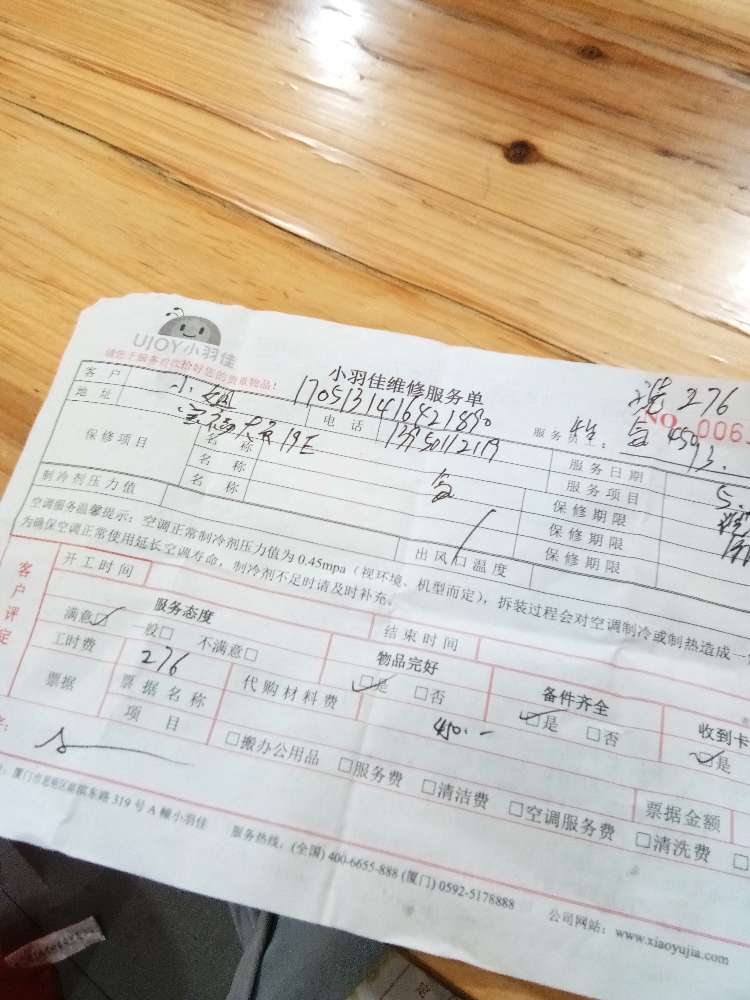 UJOY小羽佳
请您于服务前收拾好您的贵重物品!
小羽佳维修服务单
洗276
1705131416421890
NO.006
客户 小姐 电话 13950112119 服务员: 450
地址 19E 服务日期
保修项目 名称 服务项目
名称 保修期限
名称 保修期限
制冷剂压力值 出风口温度 保修期限
空调服务温馨提示: 空调正常制冷剂压力值为 0.45mpa (视环境、机型而定), 拆装过程会对空调制冷或制热造成一
为确保空调正常使用延长空调寿命, 制冷剂不足时请及时补充。
客户评定
开工时间 结束时间
服务态度 物品完好 备件齐全 收到卡
满意□ 一般□ 不满意□ □是 □否 □是 □否 □是
工时费 276 代购材料费 450.-
票据 票据名称 票据金额
项目 □搬办公用品 □服务费 □清洁费 □空调服务费 □清洗费 □
319 号 A 幢小羽佳 服务热线: (全国) 400-6655-888 (厦门) 0592-5178888 公司网站: www.xiaoyujia.com